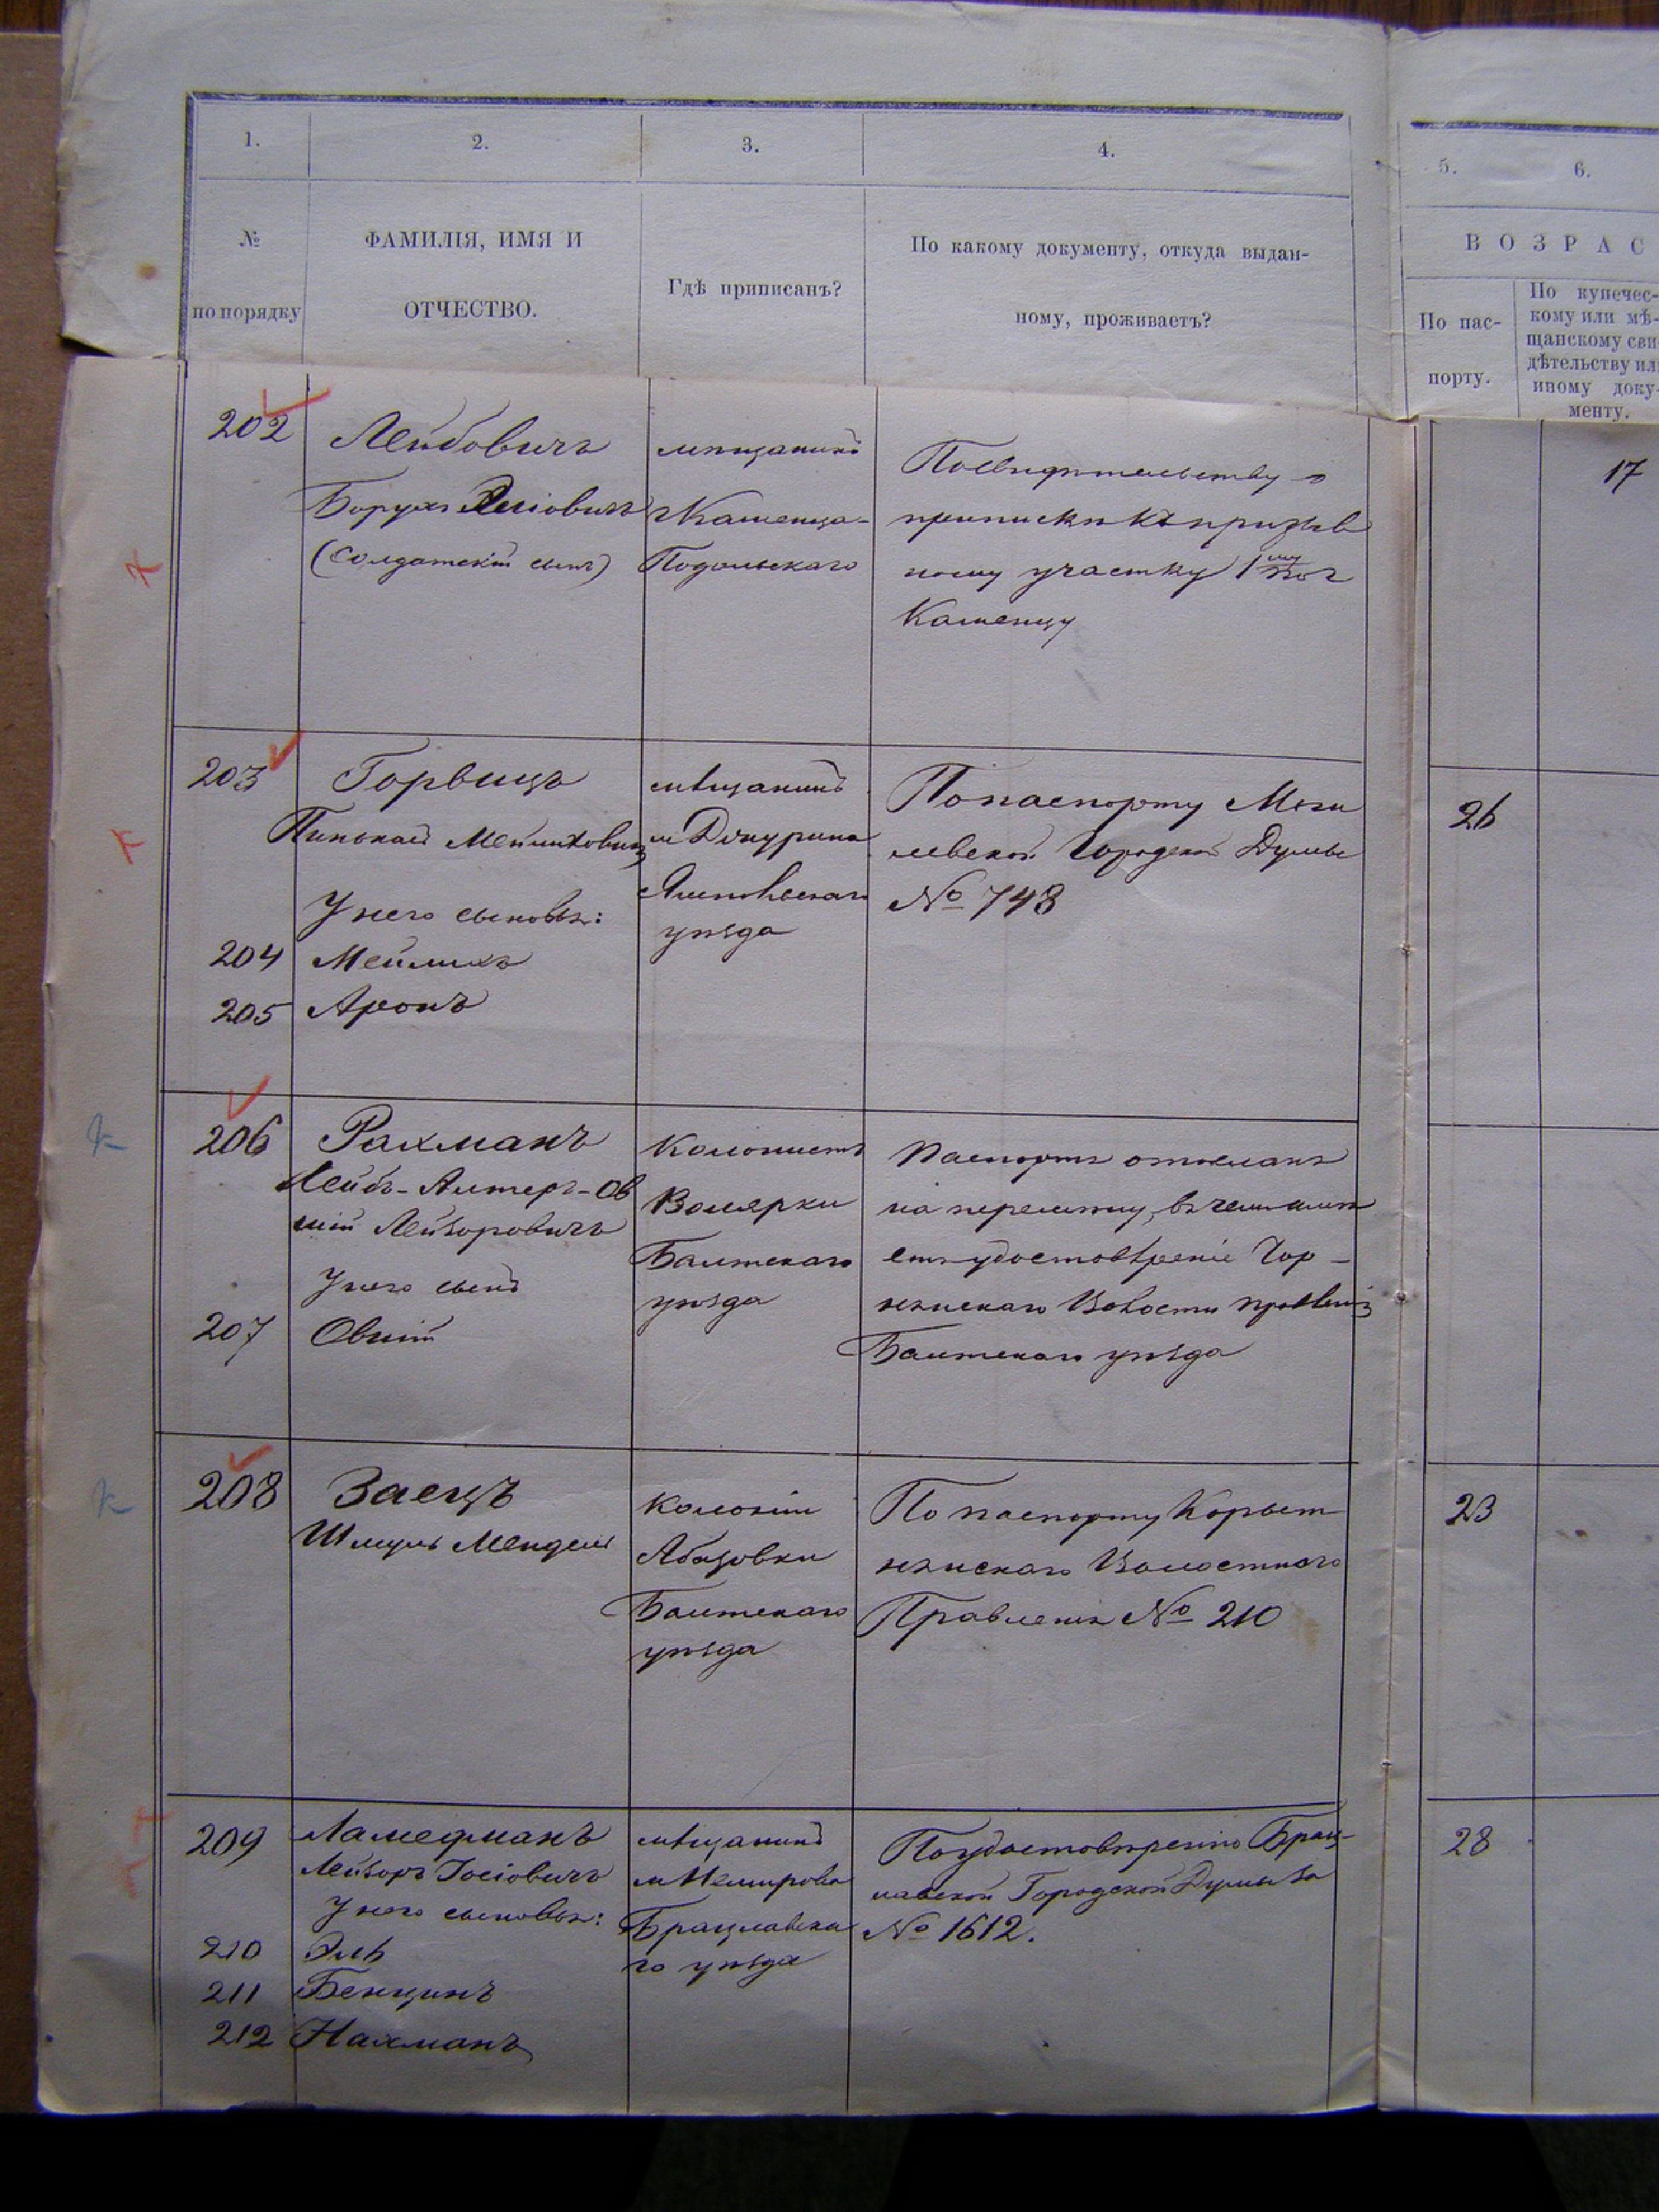 1.
2.
3.
4.
5.
6.
№
по порядку
ФАМИЛІЯ, ИМЯ И
ОТЧЕСТВО.
Гдѣ приписанъ?
По какому документу, откуда выдан-
ному, проживаетъ?
ВОЗРАС
По пас-
порту.
По купечес-
кому или мѣ-
щанскому сви
дѣтельству ил
иному доку-
менту.
202
Лейбовичъ
Борухъ
(Солдатскій сынъ)
мѣщанинъ
г Каменца-
Подольскаго
По свидѣтельству о
припискѣ къ призыв
ному участку 1му по г
Каменцу
17
203
Горвицъ
Пинькасъ Мейлиховичъ
У него сыновья:
204
Мейлихъ
205
Аронъ
мѣщанинъ
м
уѣзда
По паспорту Моги
левской Городской Думы
№ 748
26
206
Рахманъ
Лейбъ-Алтеръ-Ов
шій Лейзоровичъ
У него сынъ
207
Овшій
Колонистъ
Балтскаго
уѣзда
Паспортъ отосланъ
на перемѣну, въ чемъ имѣ
етъ удостовѣреніе
Балтскаго уѣзда
208
Заецъ
Шмуль Мендель
Колоніи
Абазовки
Балтскаго
уѣзда
По паспорту
Волостного
Правленія № 210
23
209
Лейзоръ Іосіовичъ
У него сыновья:
210
Эль
211
Бенционъ
212
Нахманъ
мѣщанинъ
м Немирова
Брацлавска
го уѣзда
По удостовѣренію Брац-
лавской Городской Думы за
№ 1612.
28